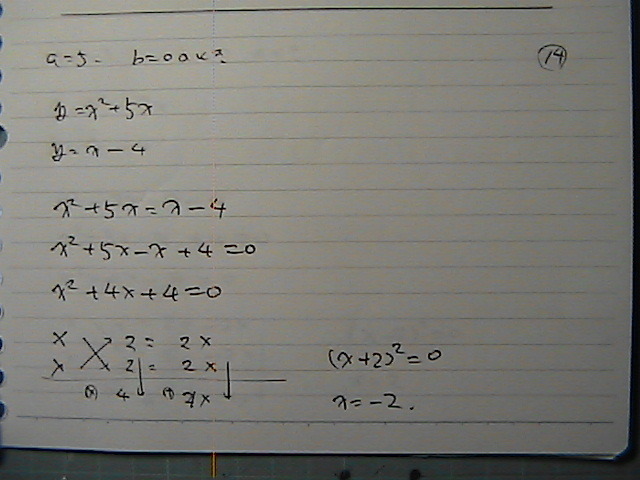 a=5. b=0のとき
⑭
y=x²+5x
y=x-4
x²+5x=x-4
x²+5x-x+4=0
x²+4x+4=0
x 2= 2x
x 2= 2x
4 4x
(x+2)²=0
x=-2.